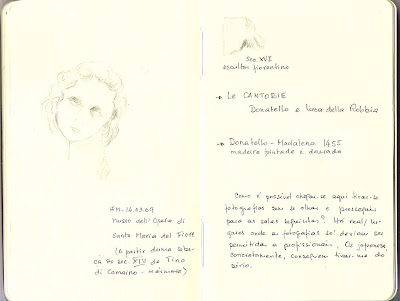 14.03.09
Museo dell'Opera di
Santa Maria del Fiore
(a partir duma cabe-
ça do sec. XIV de Tino
di Camaino - mármore)
Sec. XVI
escultor fiorentino
→ Le CANTORIE
Donatello e Luca della Robbia
→ Donatello - Madalena 1455
madeira pintada e dourada
Como é possível chegar-se aqui tirar-se
fotografias sem se olhar e prosseguir
para as salas seguintes? Há real/ lu-
gares onde a fotografias só deviam ser
permitida a profissionais. Os japoneses,
concretamente, conseguem tirar-me do
sério.